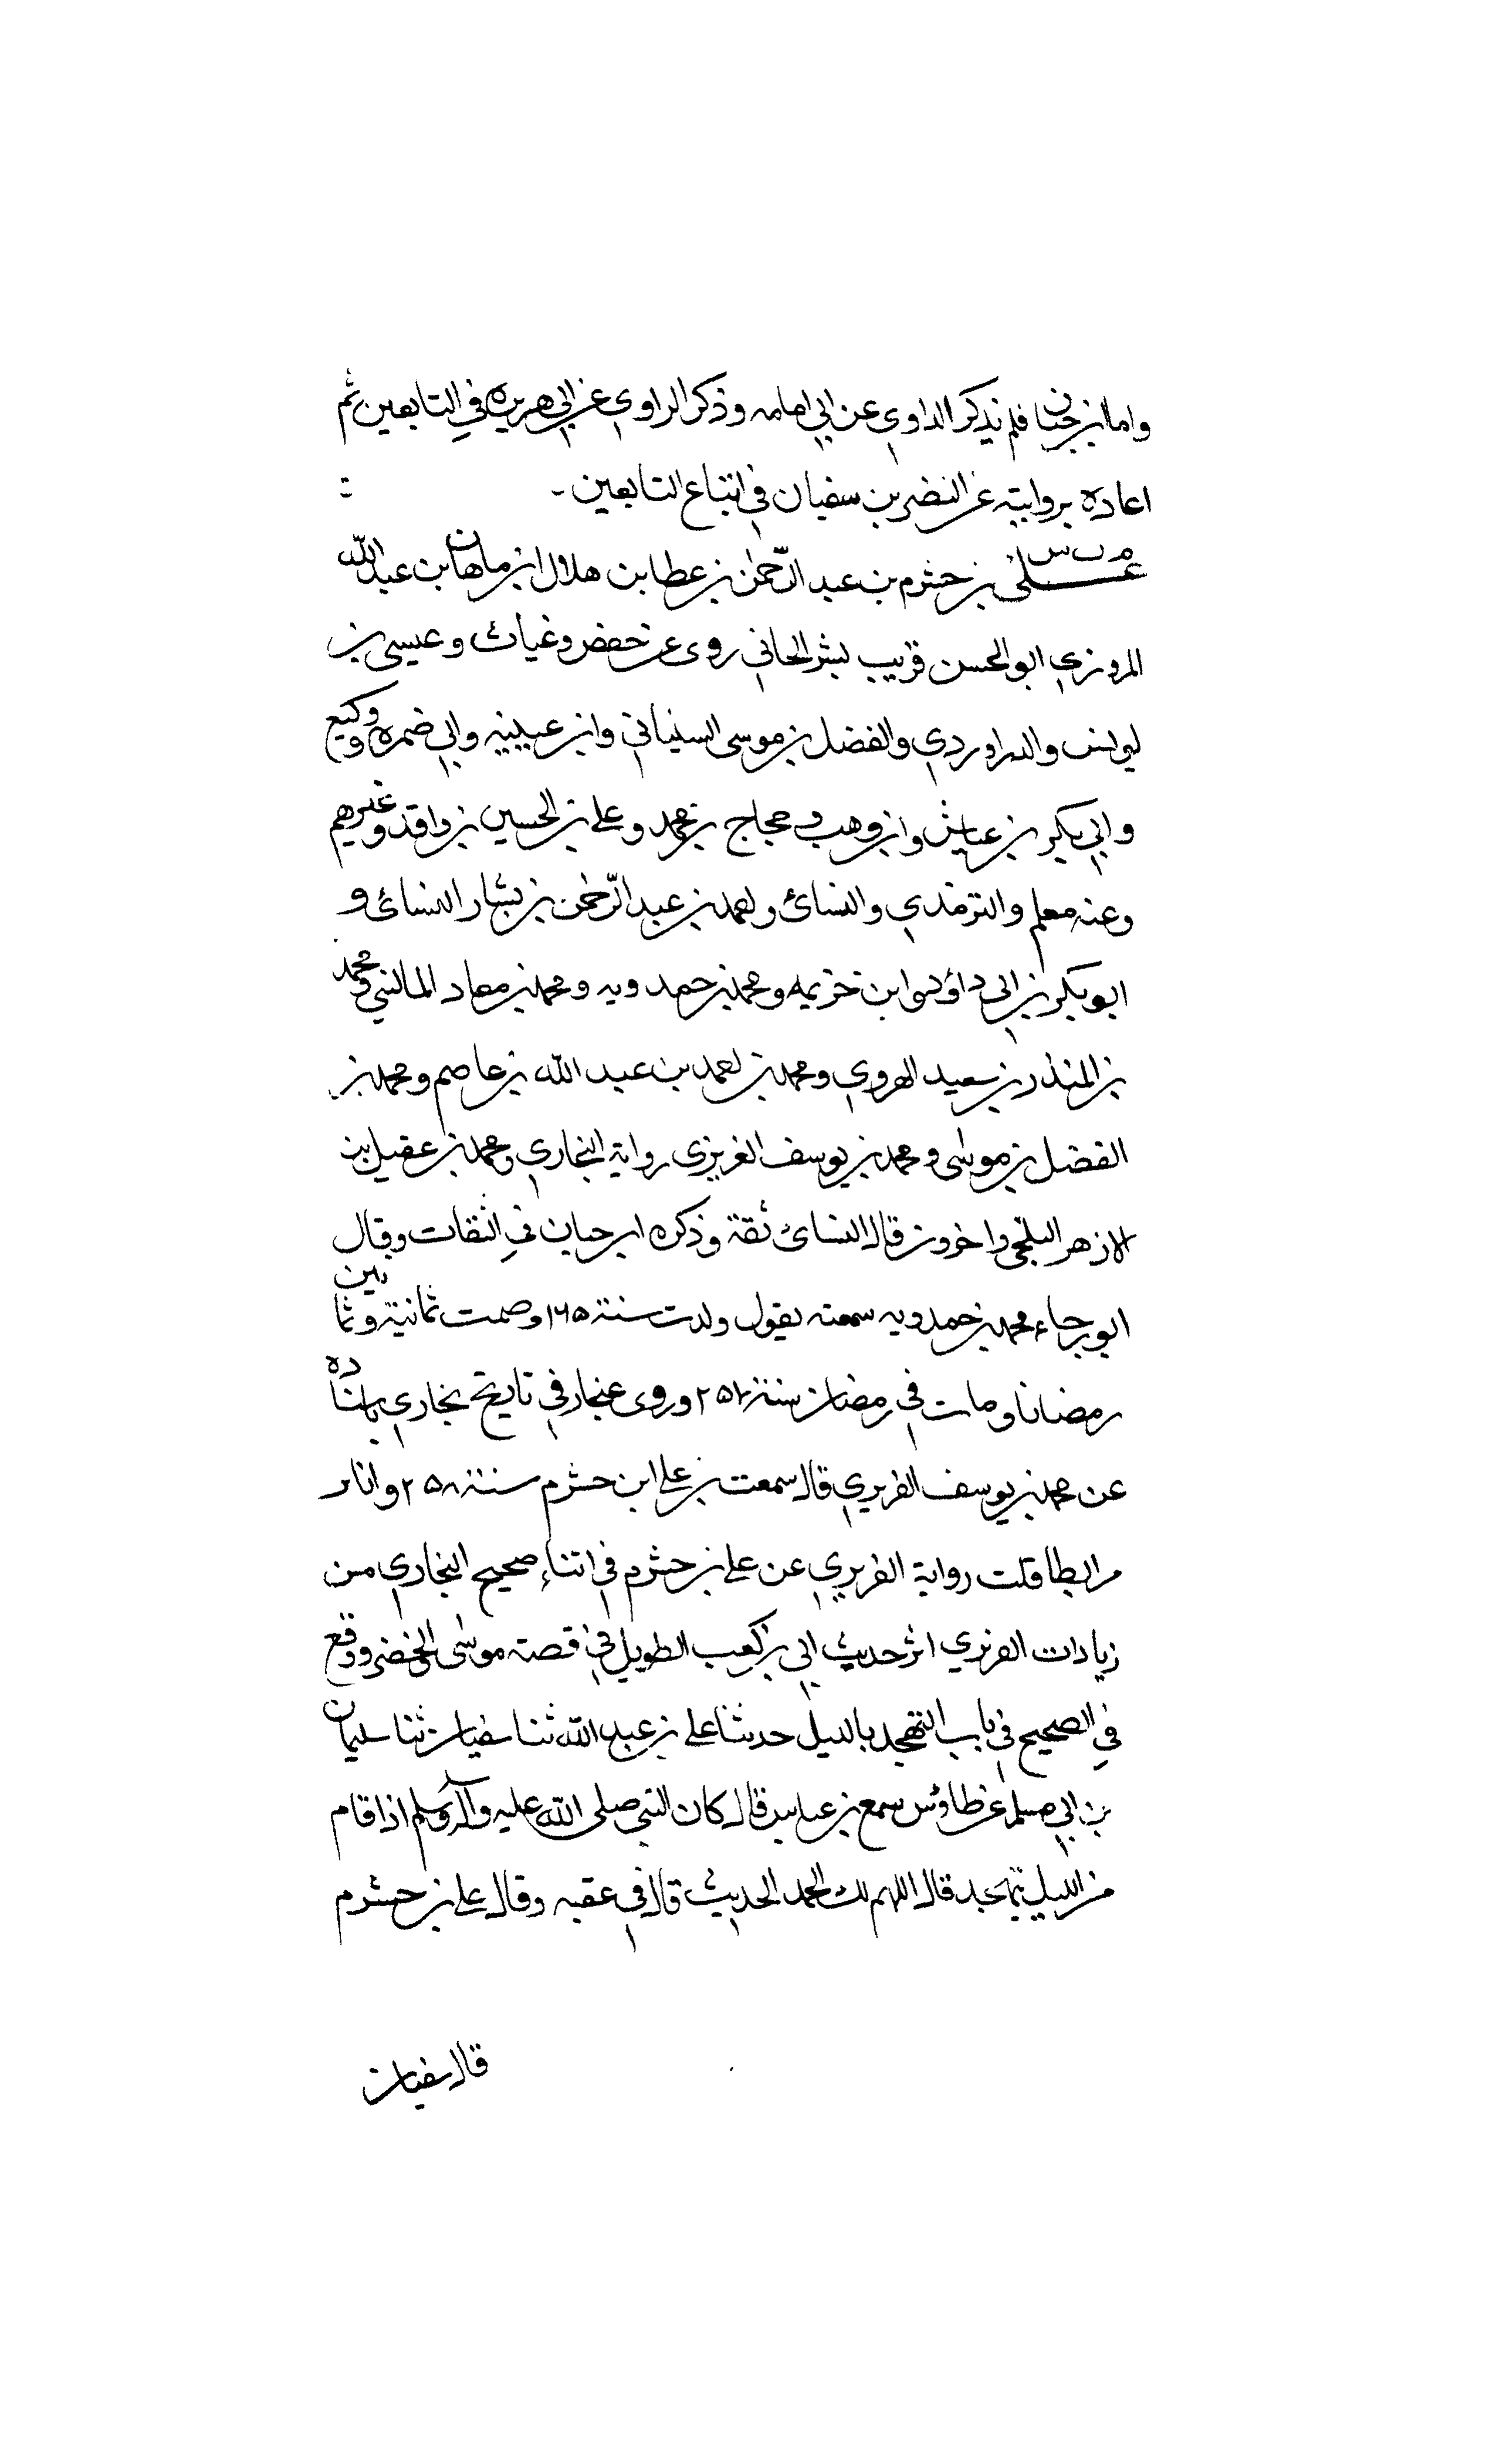 واما ابن حبان فلم يذكر الداوي عن ابي امامه وذكر الراوي عن ابي هريره في التابعين ثم
اعاده بروايته عن النضر بن سفيان في اتباع التابعين -
م ت س
علي بن خشرم بن عبد الرحمٰن بن عطا بن هلال ابن ماهان بن عبد الله
المروزي ابو الحسن قريب بشر الحافي روى عن حفص وغياث وعيسى بن
يونس والدراوردي والفضل بن موسى السيناني وابن عيينه وابي ضمره ووكيع
وابي بكر بن عياش وابن وهب و حجاج بن محمد وعلي بن الحسين بن واقد وغيرهم
وعنه مسلم والترمذي والنسائ واحمد بن عبد الرحمٰن بن بشار النسائ و
ابو بكر بن ابي داؤد وابن خزيمه ومحمد بن حمدويه ومحمد بن معاد المالني ومحمد
بن المنذر بن سعيد الهروي ومحمد بن احمد بن عبد الله بن عاصم ومحمد بن
الفضل بن موسى ومحمد بن يوسف الفربري رواية البخاري ومحمد بن عقيل بن
الازهر البلخي واخرون قال النسائ ثقة وذكره ابن حبان في الثقات وقال
ابو رجاء محمد بن حمدويه سمعته يقول ولدت سنة ١٦٥ وصمت ثمانية وثمانين
رمضانا ومات في رمضان سنة ٢٥٧ وروى غنجار في تاريخ بخاري باسناده
عن محمد بن يوسف الفربري قال سمعت بن علي ابن خشرم سنة ٢٥٨ وانا بر
مرابطا قلت رواية الفربري عن علي بن خشرم في اثناء صحيح البخاري من
زيادات الفربري اثر حديث ابي بن كعب الطويل في قصة موسى والخضر ووقع
في الصحيح في باب التهجد بالليل حدثنا علي بن عبد الله ثنا سفيان ثنا سليمان
بن ابي مسلم عن طاوس سمع بن عباس قال كان النبي صلى الله عليه وآله وسلم اذا قام
من الليل يتهجد قال اللهم لك الحمد الحديث قال في عقبه وقال علي بن خشرم
قال سفيان